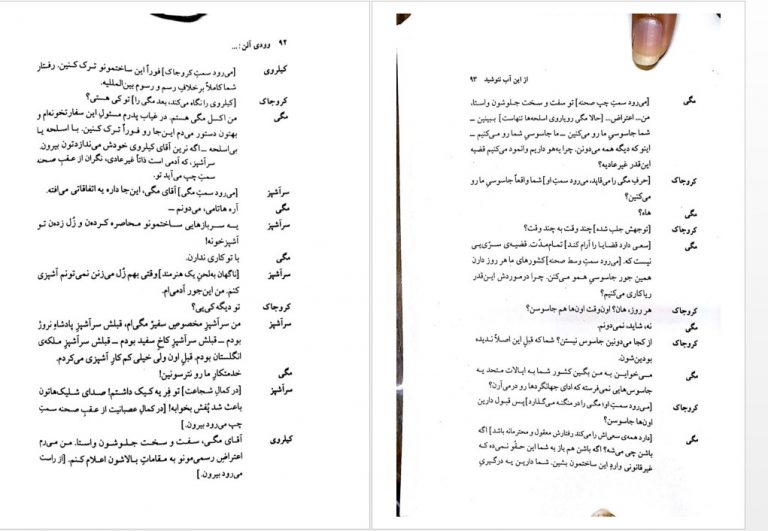 ۹۲ وودی آلن: ...
کیلروی [می‌رود سمتِ کروجاک] فوراً این ساختمونو ترک کنین. رفتار
شما کاملاً برخلافِ رسم و رسوم بین‌المللیه.
کروجاک [کیلروی را نگاه می‌کند، بعد مگی را] تو کی هستی؟
مگی من اکسل مگی هستم. در غیاب پدرم مسئولِ این سفارتخونه‌ام و
بهتون دستور می‌دم این‌جا رو فوراً ترک کنین. با اسلحه یا
بی‌اسلحه ــ اگه نرین آقای کیلروی خودش می‌ندازدتون بیرون.
سرآشپز، که آدمی است ذاتاً غیرعادی، نگران از عقبِ صحنه
سمتِ چپ می‌آید تو.
سرآشپز [می‌رود سمتِ مگی] آقای مگی، این‌جا داره یه اتفاقاتی می‌افته.
مگی آره هاتامی، می‌دونم ــ
سرآشپز یه سربازهایی ساختمونو محاصره کردن و زُل زدن تو
آشپزخونه!
مگی با تو کاری ندارن.
سرآشپز [ناگهان به‌لحنِ یک هنرمند] وقتی بهم زُل می‌زنن نمی‌تونم آشپزی
کنم. من این‌جور آدمی‌ام.
کروجاک تو دیگه کی‌یی؟
سرآشپز من سرآشپزِ مخصوصِ سفیرْ مگی‌ام، قبلش سرآشپزِ پادشاهِ نروژ
بودم ــ قبلش سرآشپزِ کاخِ سفید بودم ــ قبلش سرآشپزِ ملکه‌ی
انگلستان بودم. قبلِ اون ولی خیلی کم کارِ آشپزی می‌کردم.
مگی خدمتکارِ ما رو نترسونین!
سرآشپز [در کمالِ شجاعت] تو فِر یه کیک داشتم! صدای شلیک‌هاتون
باعث شد پُفش بخوابه! [در کمالِ عصبانیت از عقبِ صحنه سمتِ
چپ می‌رود بیرون.]
کیلروی آقای مگی، سفت و سخت جلوشون واستا. من می‌رم
اعتراضِ رسمی‌مونو به مقاماتِ بالاشون اعلام کنم. [از راست
می‌رود بیرون.]
از این آب ننوشید ۹۳
مگی [می‌رود سمتِ چپِ صحنه] تو سفت و سخت جلوشون واستا،
من... اعتراض... [حالا مگی رویاروی اسلحه‌ها تنهاست] ببینین ــ
شما جاسوسیِ ما رو می‌کنین ــ ما جاسوسیِ شما رو می‌کنیم ــ
اینو که دیگه همه می‌دونن. چرا یه‌هو داریم وانمود می‌کنیم قضیه
این‌قدر غیرعادیه؟
کروجاک [حرفِ مگی را می‌قاپد، می‌رود سمتِ او] شما واقعاً جاسوسیِ ما رو
می‌کنین؟
مگی هاه؟
کروجاک [توجهش جلب شده] چند وقت به چند وقت؟
مگی [سعی دارد قضایا را آرام کند] تمامِ مدّت. قضیه‌ی سرّی‌یی
نیست که. [می‌رود سمتِ وسطِ صحنه] کشورهای ما هر روز دارن
همین جور جاسوسیِ همو می‌کنن. چرا درموردش این‌قدر
ریاکاری می‌کنیم؟
کروجاک هر روز، هان؟ اون‌وقت اون‌ها هم جاسوسن؟
مگی نه، شاید، نمی‌دونم.
کروجاک از کجا می‌دونین جاسوس نیستن؟ شما که قبلِ این اصلاً ندیده
بودین‌شون.
مگی می‌خواین به من بگین کشورِ شما به ایالات متحد یه
جاسوس‌هایی نمی‌فرسته که ادای جهانگردها رو درمی‌آرن؟
کروجاک [می‌رود سمتِ او؛ مگی را در منگنه می‌گذارد] پس قبول دارین
اون‌ها جاسوسن؟
مگی [دارد همه‌ی سعی‌اش را می‌کند رفتارش معقول و محترمانه باشد] اگه
باشن چی می‌شه؟ اگه باشن هم باز به شما این حقّو نمی‌ده که
غیرقانونی واردِ این ساختمون بشین. شما دارین یه درگیریِ